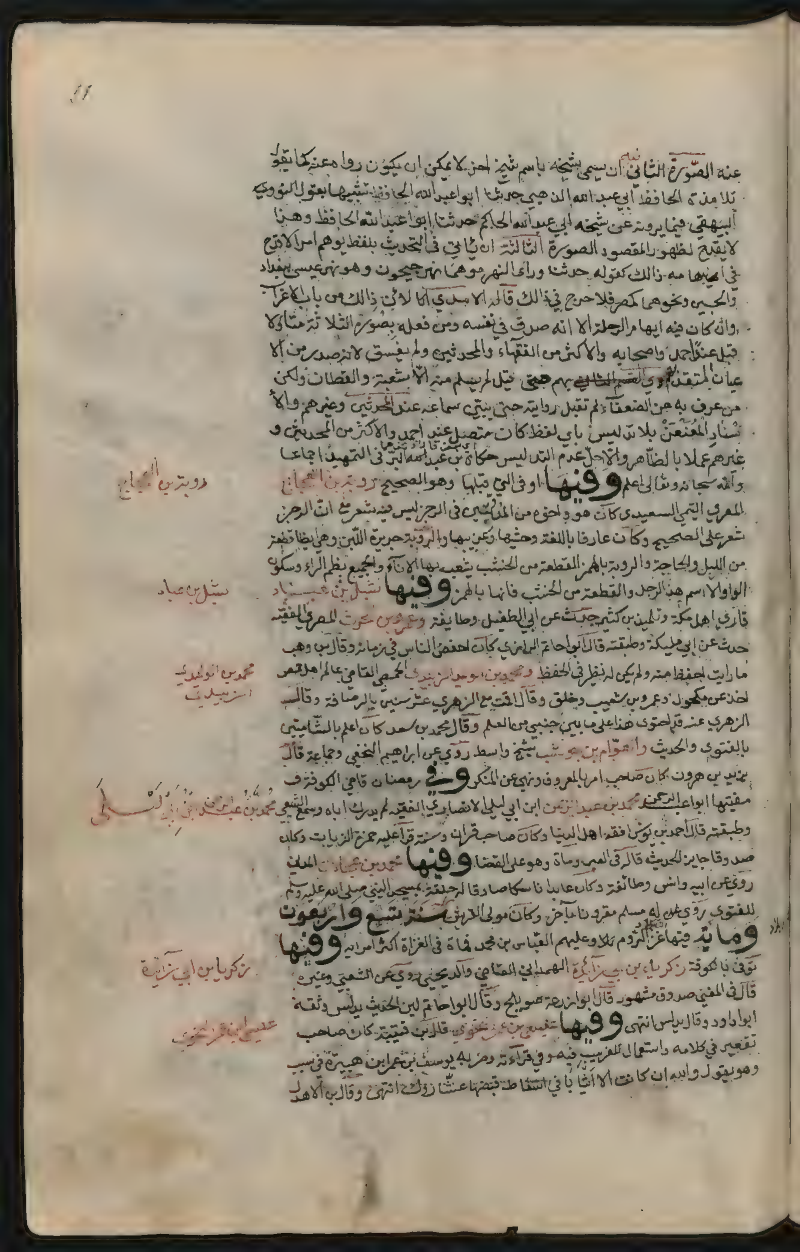 عنه الصورة الثانية ان يسمي شيخه باسم شيخ اخر لا يمكن ان يكون رواه عنه كما يقول
تلامذة الحافظ ابي عبد الله الذهبي حدثنا ابو عبد الله الحافظ تشبيها بقول
البيهقي فيما يرويه عن شيخه ابي عبد الله الحاكم حدثنا ابو عبد الله الحافظ وهذا
لا يقدح لظهور المقصود الصورة الثالثة ان ياتي في التحديث بلفظ يوهم امرا لا قدح
في ايهامه ذالك كقوله حدثنا وراء النهر موهما نهر جيحون وهو نهر عيسى ببغداد
ونحوهما كمصر فلا حرج في ذالك قاله الامدي لان ذالك من باب الاغراب
وان كان فيه ايهام الرحلة الا انه صدق في نفسه ومن فعله بصورة الثلاثة متاولا
قبل عند احمد واصحابه والاكثر من الفقهاء والمحدثين ولم يفسق لانه صدر من الا
عيان المتقدم بهم حتى قيل لم يسلم منه الا شعبة والقطان ولكن
من عرف به عن الضعفاء لم تقبل روايته حتى يبين سماعه عند المحدثين وغيرهم والا
سناد المعنعن بلا تدليس باي لفظ كان متصل عند احمد والاكثر من المحدثين و
غيرهم عملا بالظاهر والاصل عدم التدليس حكاه بن عبد البر في التمهيد اجماعا
والله سبحانه وتعالى اعلم وفيها او في التي قبلها وهو الصحيح روبة بن العجاج
روبة بن العجاج
البصري التيمي السعدي كان هو وابوه من في الرجز ليس فيه شعر مع ان الرجز
شعر على الصحيح وكان عارفا باللغة وحشيها وغريبها والروبة خميرة اللبن وهي ايضا قطعة
من الليل والحاجة والروبة بالهمز القطعة من الخشب يشعب بها الاناء والجميع بظم الراء وسكون
الواو الا اسم هذا الرجل والقطعة من الخشب فانها بالهمز وفيها شبل بن عباد
شبل بن عباد
قاري اهل مكة وتلميذ بن كثير حدث عن ابي الطفيل وطايفة وعمرو بن الحرث المصري الفقيه
حدث عن ابي مليكة وطبقته قال ابو حاتم الرازي كان احفظ الناس في زمانه وقال بن وهب
ما رايت احفظ منه ولم يكن له نظير في الحفظ ومحمد بن الوليد الزبيدي الحمصي القاضي عالم اهل حمص
محمد بن الوليد
الزبيدي
اخذ عن مكحول وعمرو بن شعيب وخلق وقال اقمت مع الزهري عشر سنين بالرصافة وقال
الزهري عنه قد احتوى هذا على ما بين جنبي من العلم وقال محمد بن سعد كان اعلم بالشاميين
بالفتوى والحديث والعوام بن حوشب شيخ واسط روى عن ابراهيم النخعي وجماعة قال
يزيد بن هرون كان صاحب امر بالمعروف ونهي عن المنكر وفي رمضان قاضي الكوفة و
مفتيها ابو عبد الرحمن محمد بن عبد الرحمن ابن ابي ليلى الانصاري الفقيه لم يدرك اباه وسمع الشعبي
محمد بن عبد الرحمن ابن ابي ليلى
وطبقته قال احمد بن يونس افقه اهل الدنيا وكان صاحب قران وسنة قرا عليه حمزة الزيات وكان
صدوقا جايز الحديث قاله في العبر ومات وهو على القضا وفيها محمد بن عجلان المدني
روى عن ابيه وانس وطائفة وكان عابدا ناسكا صادقا له حلقة بمسجد النبي صلى الله عليه وسلم
للفتوى روى له مسلم مقرونا باخر وكان مولى لقريش سنة تسع واربعون
وماية فيها غزا الروم بلاد وعليهم العباس بن محمد فمات في الغزاة اكثر امرايه وفيها
بلاد
توفي بالكوفة زكرياء بن ابي زائدة الهمداني القاضي والد يحيى روى عن الشعبي وغيره
زكريا بن ابي زائدة
قال في المغني صدوق مشهور قال ابو زرعة صويلح وقال ابو حاتم لين الحديث يدلس وثقه
ابو داود وقال يدلس انتهى وفيها عيسى بن عمر النحوي قال بن قتيبة كان صاحب
عيسى بن عمر النحوي
تقعير في كلامه واستعمال للغريب فيه وفي قراءته وضربه يوسف بن عمر ابن هبيرة في سبب
وهو يقول والله ان كانت الا اثيابا في اسفاط قبضها عشاروك انتهى وقال بن الاهدل